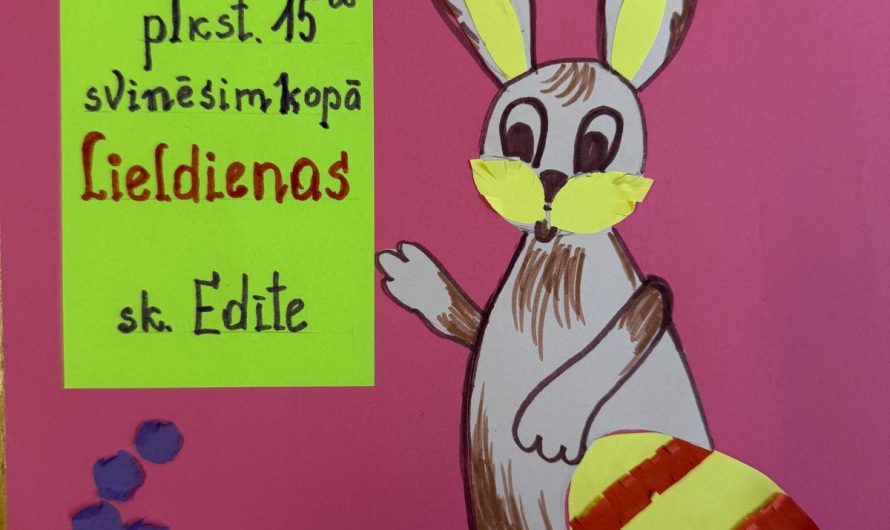 plkst. 15⁰⁰
svinēsim kopā
Lieldienas
sk. Edīte